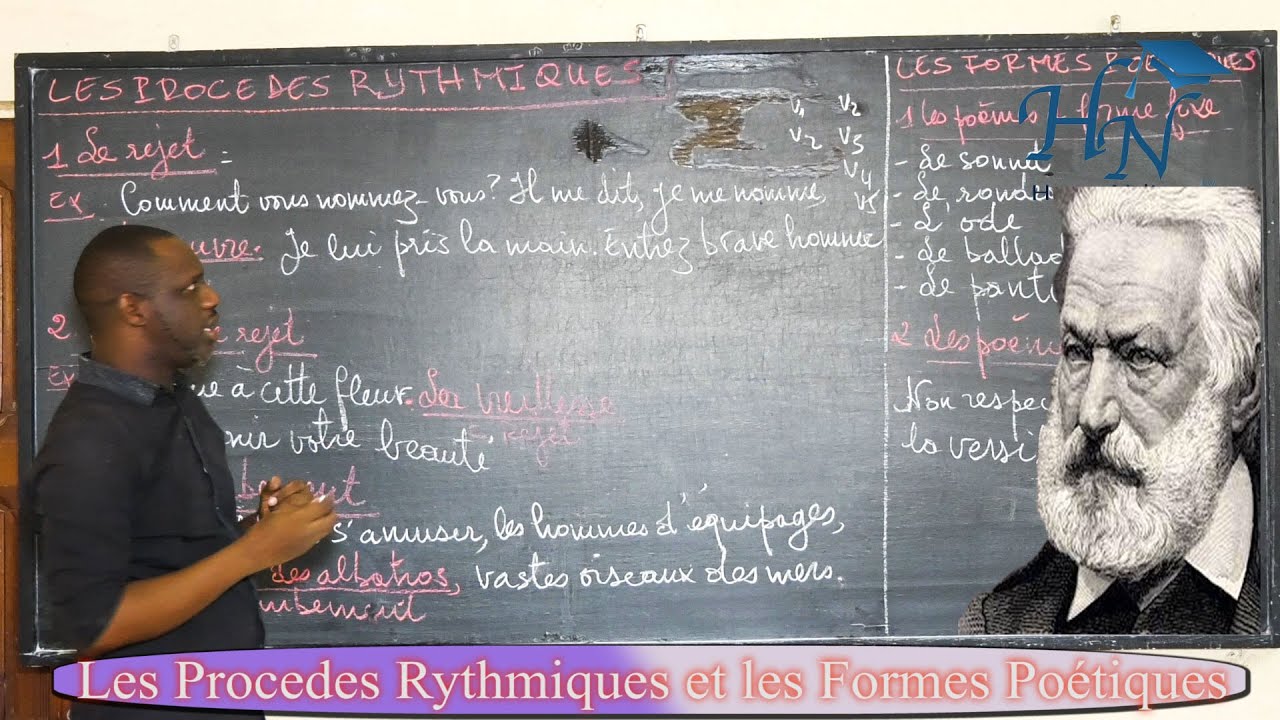 LES PROCEDES RYTHMIQUES
1 Le rejet :
Ex Comment vous nommez-vous? Il me dit, je me nomme,
uvre. Je lui pris la main. Entrez brave homme
V1 V2
V2 V3
V4
V5
2 rejet
Ex à cette fleur. La vieillesse
rejet
nir votre beauté
s'amuser, les hommes d'équipages,
des albatros, vastes oiseaux des mers.
mbement
LES FORMES
1 les poèmes fixe
- Le sonn
- Le ron
- L'ode
- Le ballad
- Le pant
2 Les poèm
Non respec
la versi
HN
Les Procedes Rythmiques et les Formes Poétiques